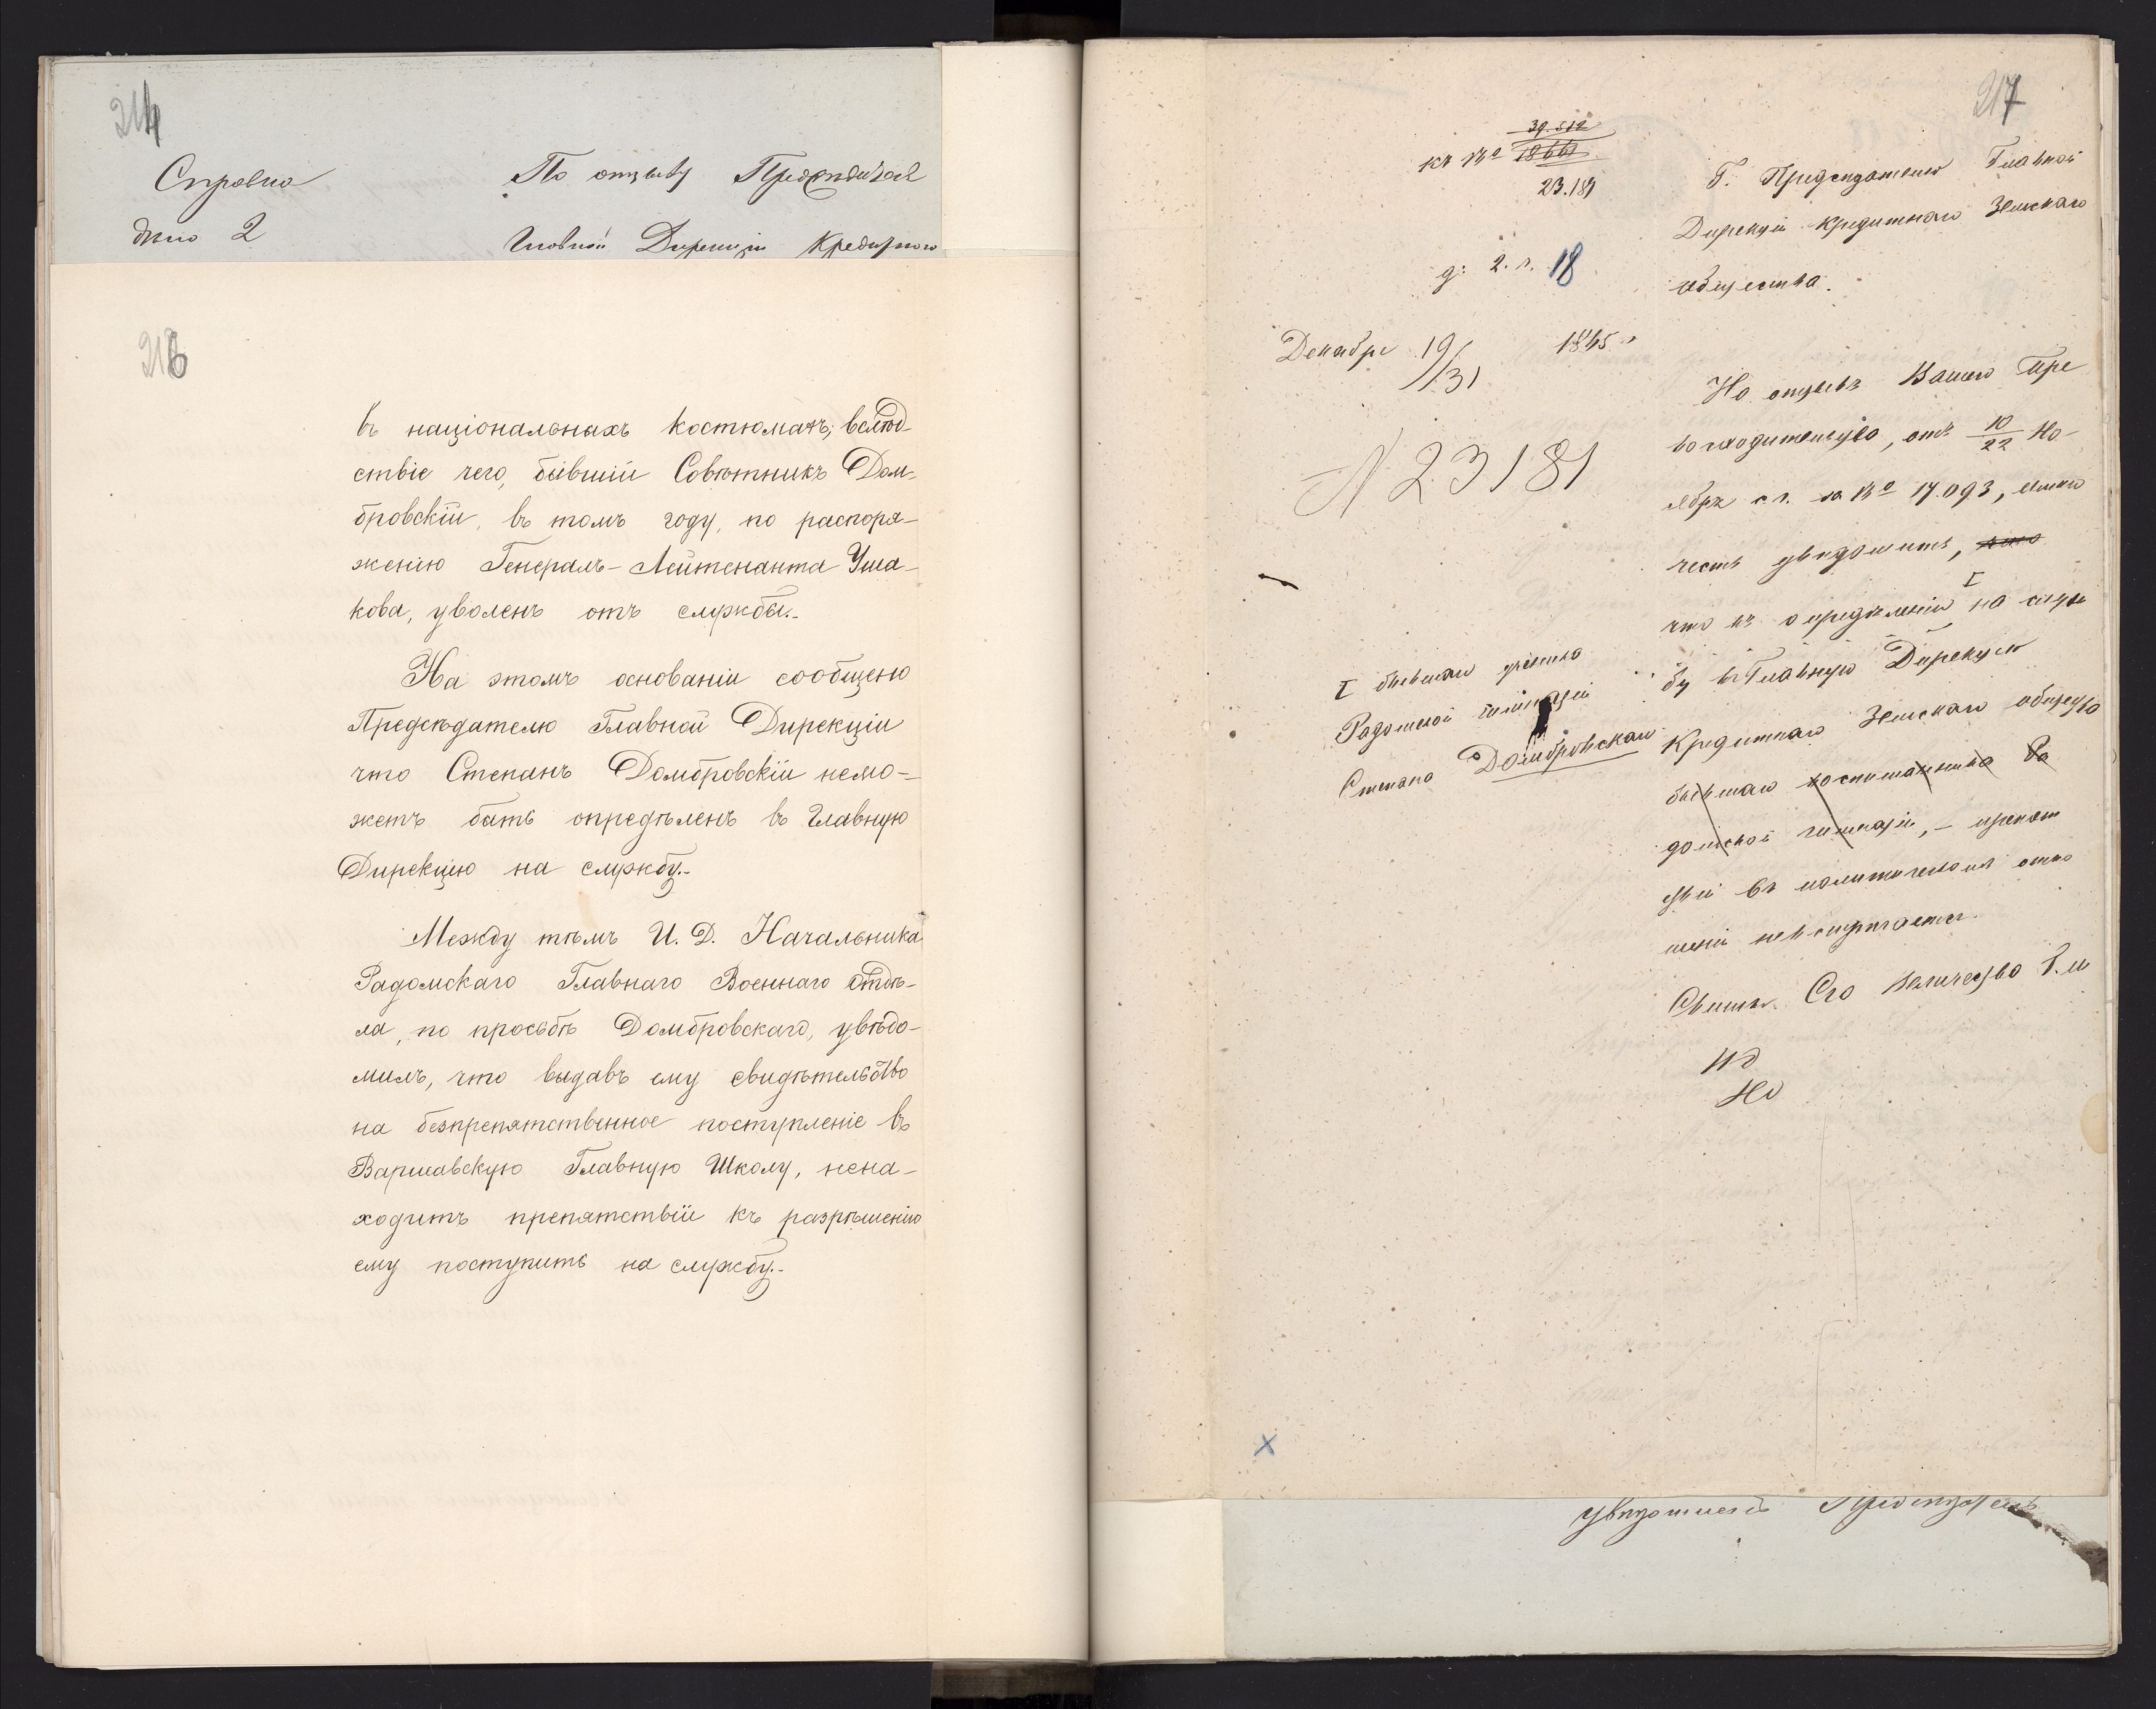 214
Справка
дѣло 2
По отзыву Предсѣдателя
Главной Дирекціи Кредитнаго
216
въ націоналынахъ костюмахъ, вслѣд-
ствіе чего, бывшій Совѣтникъ Дом-
бровскій, въ томъ году, по распоря-
женію Генералъ-Лейтенанта Уша-
кова, уволенъ отъ службы.-
На этомъ основаніи сообщено
Предсѣдателю Главной Дирекціи
что Степанъ Домбровскій немо-
жетъ быть опредѣленъ въ Главную
Дирекцію на службу.-
Между тѣмъ И. Д. Начальника
Радомскаго Главнаго Военнаго Отдѣ-
ла, по просьбѣ Домбровскаго, увѣдо-
милъ, что выдавъ ему свидѣтельство
на безпрепятственное поступленіе въ
Варшавскую Главную Школу, нена-
ходитъ препятствій къ разрѣшенію
ему поступить на службу.-
217
39.512
къ № 18661
23.181
д: 2. л. 18
Декабря 19/31 1865 г.
N 23181
Г. Предсѣдателю Главной
Дирекціи Кредитнаго Земскаго
общества.
На отзывъ Вашего Пре
восходительства, отъ 10/22 Но-
ября с. г. за № 17.093, имѣю
честь увѣдомить, что
что къ опредѣленію на служ
бу въ Главную Дирекцію
Кредитнаго Земскаго общества
бывшаго воспитанника Ра
домской гимназіи, - препят
ствій въ политическомъ отно
шеніи не встрѣчается.
бывшаго ученика
Радомской гимназіи
Степана Домбровскаго
Свиты Его Величества Г. М
увѣдомленъ Предсѣдатель